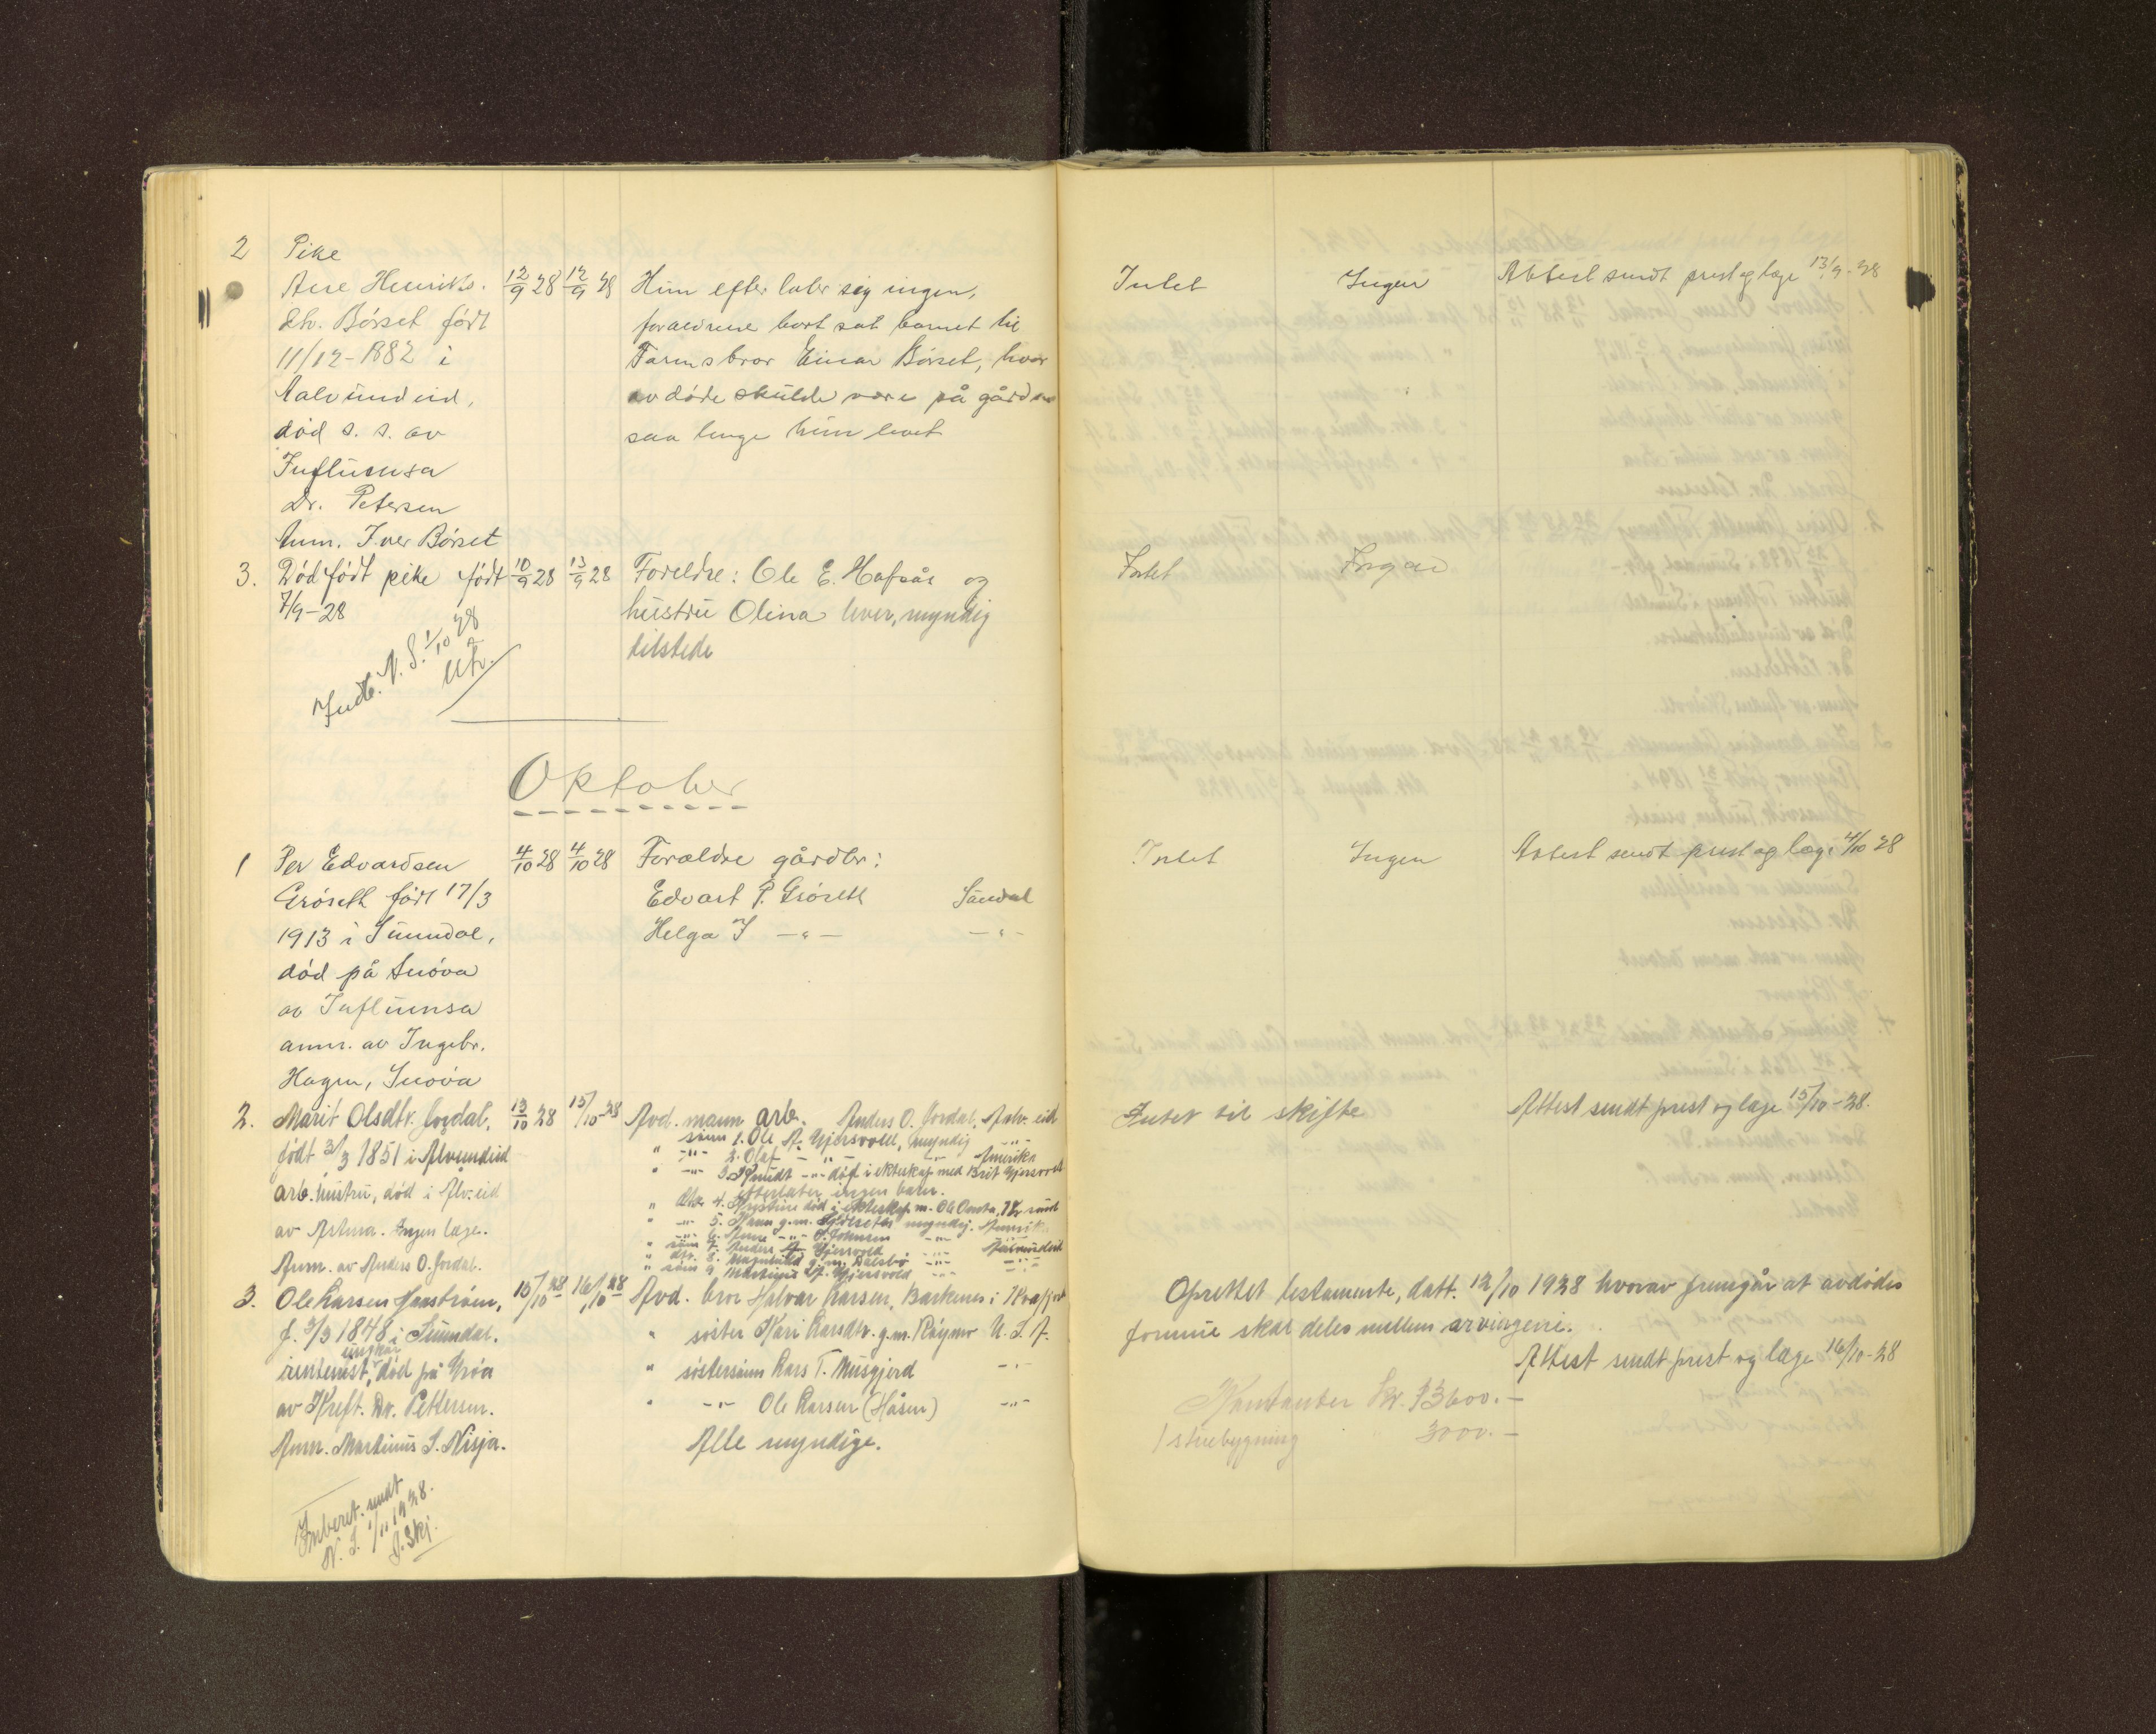 2 Pike
Ane Henriks. 12/9 28 12/9 28 Hun efter later sig ingen, Intet Ingen Attest sendt prest og læge 13/9-28
dtr. Børset født forældrene bort sat barnet til
11/12-1882 i Farmsbror Einar Børset, hvor
Aalvundeid, avdøde skulde være på gården
død s. s. av saa lenge hun levet
Influensa
Dr. Petersen
Anm. Iver Børset
3. Dødfødt pike født 10/9 28 13/9 28 Foreldre: Ole E. Hafsås og Intet Ingen
7/9-28 hustru Olina lever, myndig
tilstede
Indb. N. S. 1/10 28
Oktober
1 Per Edvardsen 4/10 28 4/10 28 Forældre gårdbr: Intet Ingen Attest sendt prest og læge 4/10 28
Grøseth født 17/3 Edvart P. Grøseth Sundal
1913 i Sunndal, Helga I -"- -"-
død på Snøva
av Influensa
anm. av Ingebr.
Hagen, Snøva
2. Marit Olsdtr. Jordal, 13/10 28 15/10-28 Avd. mann arb. Anders O. Jordal, Aalv. eid Intet til skifte Attest sendt prest og læge 15/10-28.
født 3/3 1851 i Alvundeid " sønn 1. Ole A. Gjersvold, myndig -"-
arb. hustru, død i Alv. eid " -"- 2. Olaf -"- -"- Amerika
av Astma. Ingen læge. " -"- 3. Knudt -"- død i ekteskap med Brit Gjersvold
Anm. av Anders O. Jordal. efterlater ingen barn.
" dtr. 4. Kristine død i ekteskap m. Ole
" -"- 5. g.m. myndig. Amerik.
" -"- 6. Anne -"- Johnsen -"-
" sønn 7. Anders A. Gjersvold -"- Aalvundeid
" dtr. 8. Magnhild g.m. Dalsbø -"- -"-
" sønn 9. Martinus A. Gjersvold -"- -"-
3. Ole Larsen 15/10 28 16/10 28 Avd. bror Halvar Larsen, Barkenes i Oprettet testamente, datt. 12/10 1928 hvorav fremgår at avdødes
f. 3/3 1848 i Sunndal. " søster Kari Larsdtr. g.m. Røymo U. S. A. formue skal deles mellem arvingene.
ungkar
rentenist, død på Grøa " søstersønn Lars T. Musgjerd -"- Attest sendt prest og læge 16/10-28
av Kreft. Dr. Pettersen. " -"- Ole Larsen (Håsen) -"- Kontanter Kr. 13600.-
Anm. Martinus S. Nisja. Alle myndige. 1 stuebygning 3000.-
Inberet. sendt
N. S. 1/11 1928.
J. Skj.